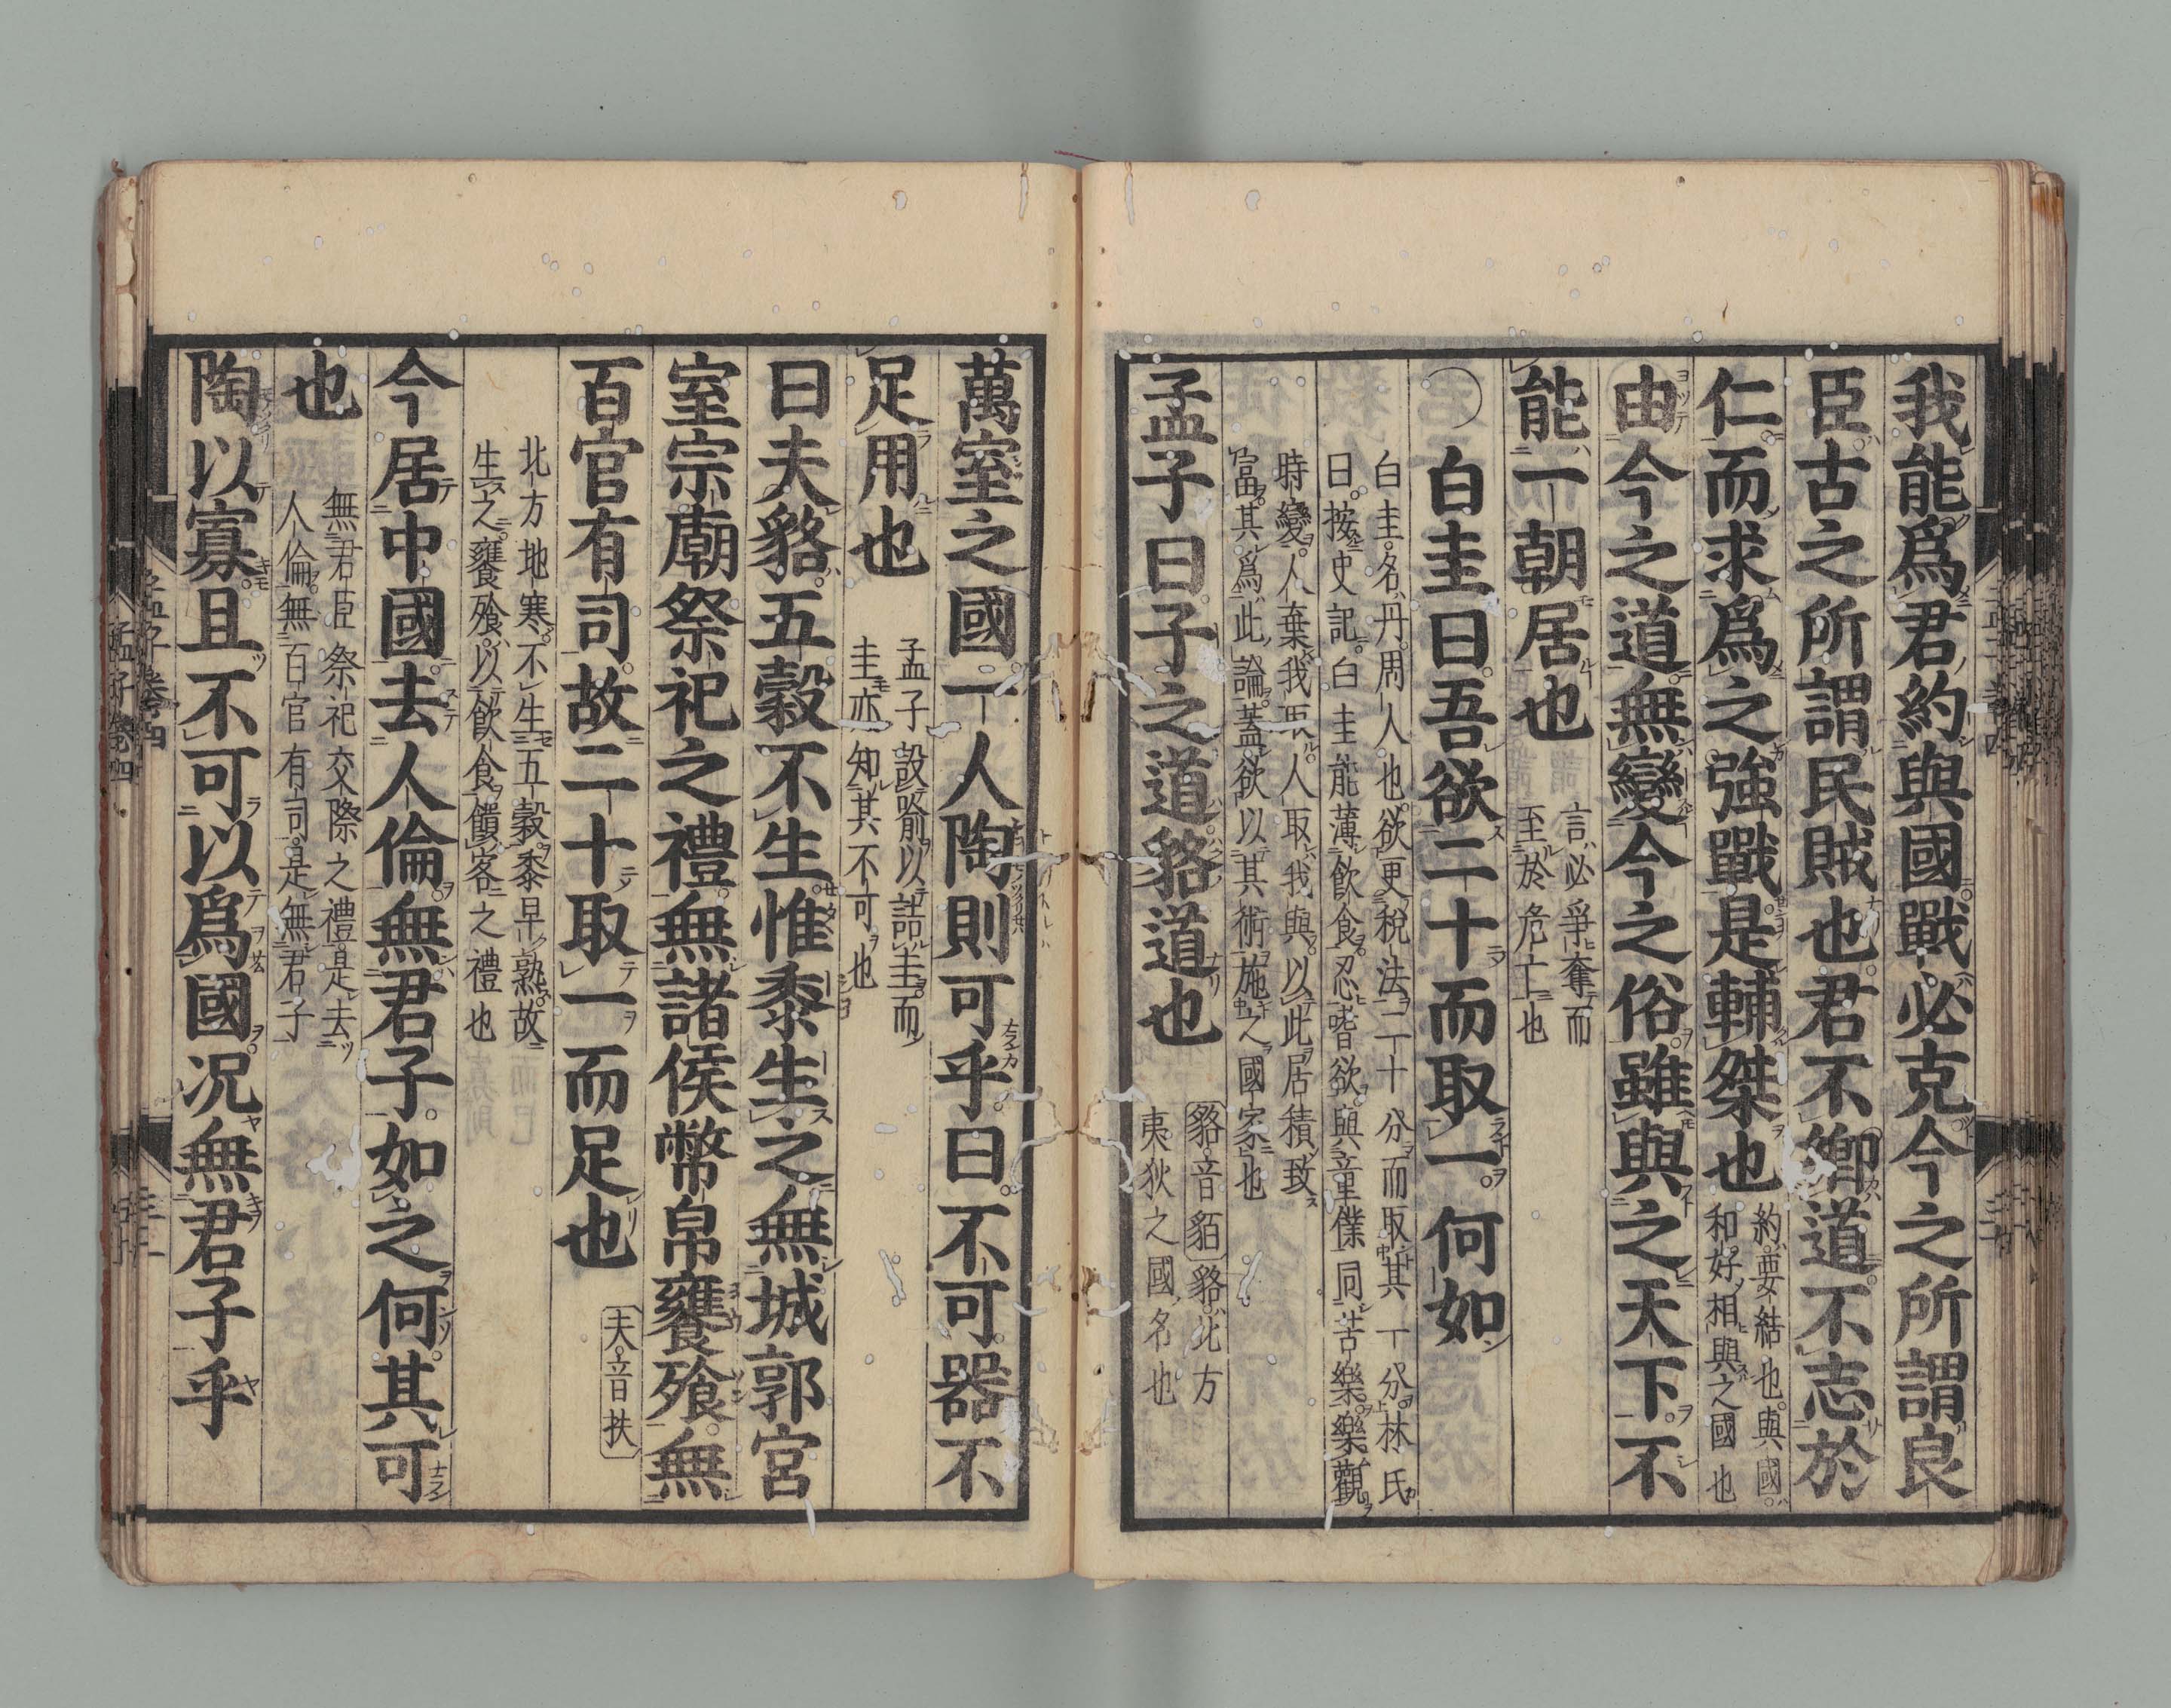 我能爲君約與國戰必克今之所謂良
臣古之所謂民賊也君不鄉道不志於
仁而求爲之強戰是輔桀也
約要結也與國
和好相與之國也
由今之道無變今之俗雖與之天下不
能一朝居也
言必爭奪而
至於危亡也
○白圭曰吾欲二十而取一何如
白圭名丹周人也欲更稅法二十分而取其一分林氏
曰按史記白圭能薄飲食忍嗜欲與童僕同苦樂樂觀
時變人棄我取人取我與以此居積致
富其爲此論蓋欲以其術施之國家也
孟子曰子之道貉道也
貉音貊貉北方
夷狄之國名也
萬室之國一人陶則可乎曰不可器不
足用也
孟子設喻以詰圭而
圭亦知其不可也
曰夫貉五穀不生惟黍生之無城郭宮
室宗廟祭祀之禮無諸侯幣帛饔飱無
百官有司故二十取一而足也
夫音扶
北方地寒不生五穀黍早熟故
生之饔飱以飲食饋客之禮也
今居中國去人倫無君子如之何其可
也
無君臣祭祀交際之禮是去
人倫無百官有司是無君子
陶以寡且不可以爲國况無君子乎
孟子卷四